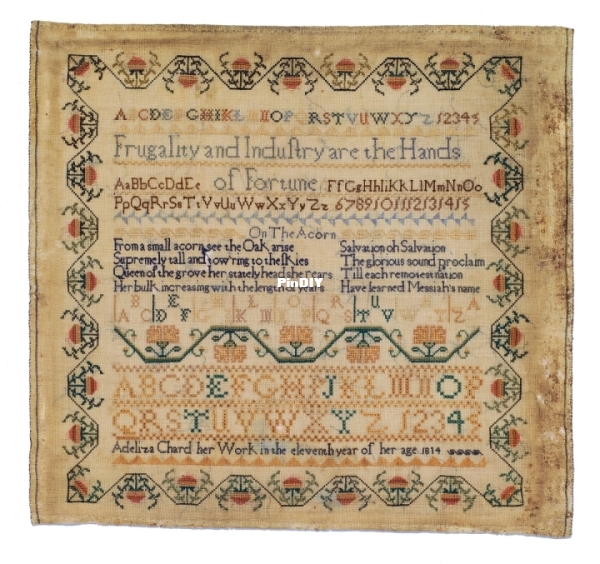 ABCDEFGHIKL MOP RSTVUWXYZ12345
Frugality and Induſtry are the Hands
AaBbCcDdEe of Fortune FfGgHhIiKkLlMmNnOo
PpQqRrSsTtVvUuWwXxYyZz 6789101112131415
On The Acorn
From a small acorn see the Oak arise
Supremely tall and tow'ring to the skies
Queen of the grove her stately head she rears
Her bulk increasing with the length of years
Salvation oh Salvation
The glorious sound proclaim
Till each remotest nation
Have learned Messiah's name
PinDIY
ABCDEFGHIJKLMNOP
QRSTUVWXYZ 12345
Adeliza Chard her Work in the eleventh year of her age 1814